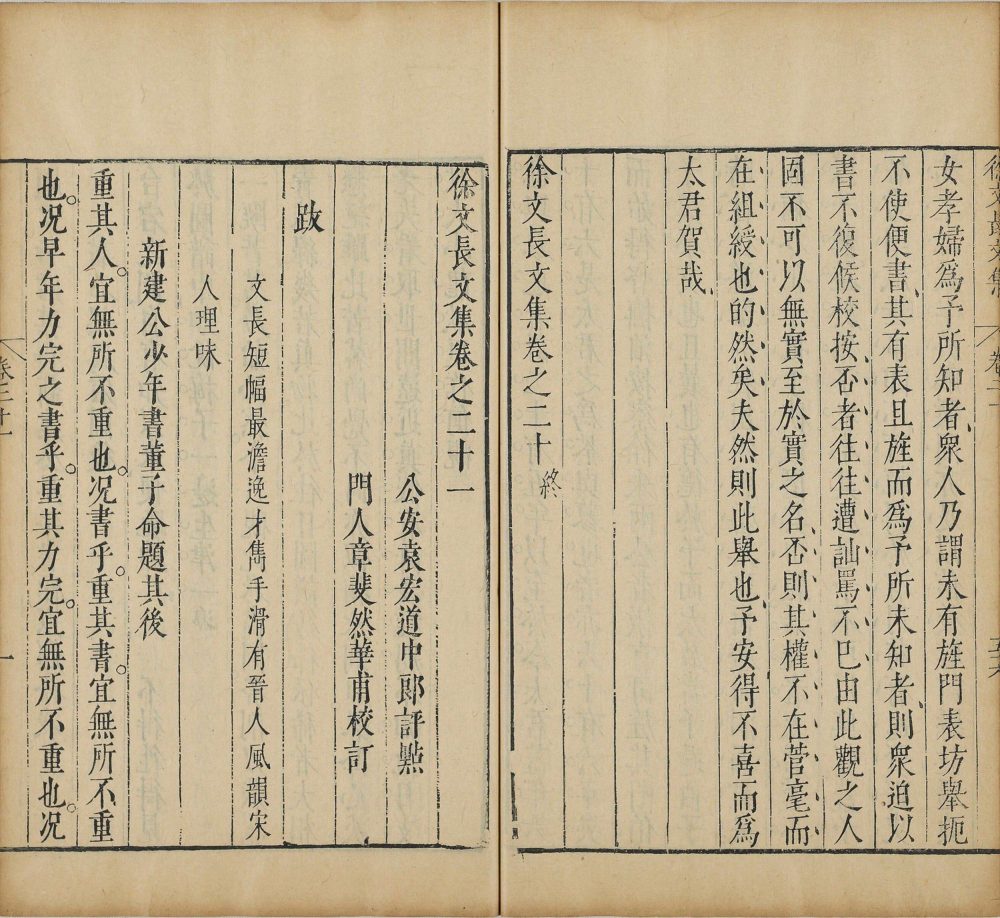 女孝婦爲予所知者衆人乃謂未有旌門表坊舉扼
不使便書其有表且旌而爲予所未知者則衆迫以
書不復候校按否者往往遭訕罵不已由此觀之人
固不可以無實至於實之名否則其權不在菅毫而
在組綬也的然矣夫然則此舉也予安得不喜而爲
太君賀哉
徐文長文集卷之二十 終
徐文長文集卷之二十一
公安袁宏道中郎評點
門人章斐然華甫校訂
跋
文長短幅最澹逸才雋手滑有晉人風韻宋
人理味
新建公少年書董子命題其後
重其人。宜無所不重也。况書乎。重其書。宜無所不重
也。况早年力完之書乎。重其力完。宜無所不重也。况
卷二十一
一